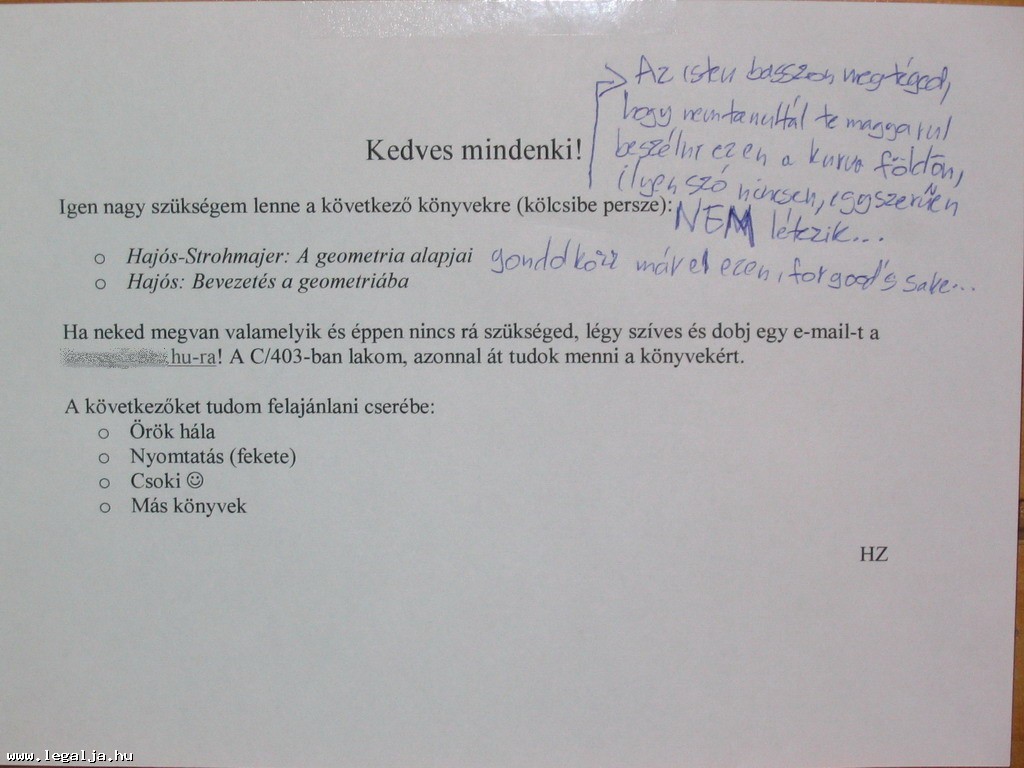 Az isten basszon meg téged,
hogy nem tanultál te maggarul
beszélni ezen a kurva földön,
ilyen szó nincsen, egyszerűen
NEM létezik...
Kedves mindenki!
Igen nagy szükségem lenne a következő könyvekre (kölcsibe persze):
o Hajós-Strohmajer: A geometria alapjai
gondolkozz már el ezen, for good's sake...
o Hajós: Bevezetés a geometriába
Ha neked megvan valamelyik és éppen nincs rá szükséged, légy szíves és dobj egy e-mail-t a
.hu-ra! A C/403-ban lakom, azonnal át tudok menni a könyvekért.
A következőket tudom felajánlani cserébe:
o Örök hála
o Nyomtatás (fekete)
o Csoki ☺
o Más könyvek
HZ
www.legalja.hu